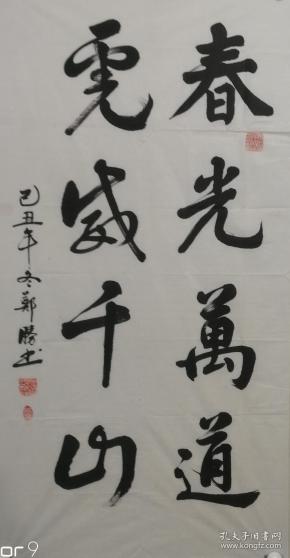 春光萬道
虎威千山
己丑年冬鄭勝书
or 9
孔夫子旧书网
www.kongfz.com